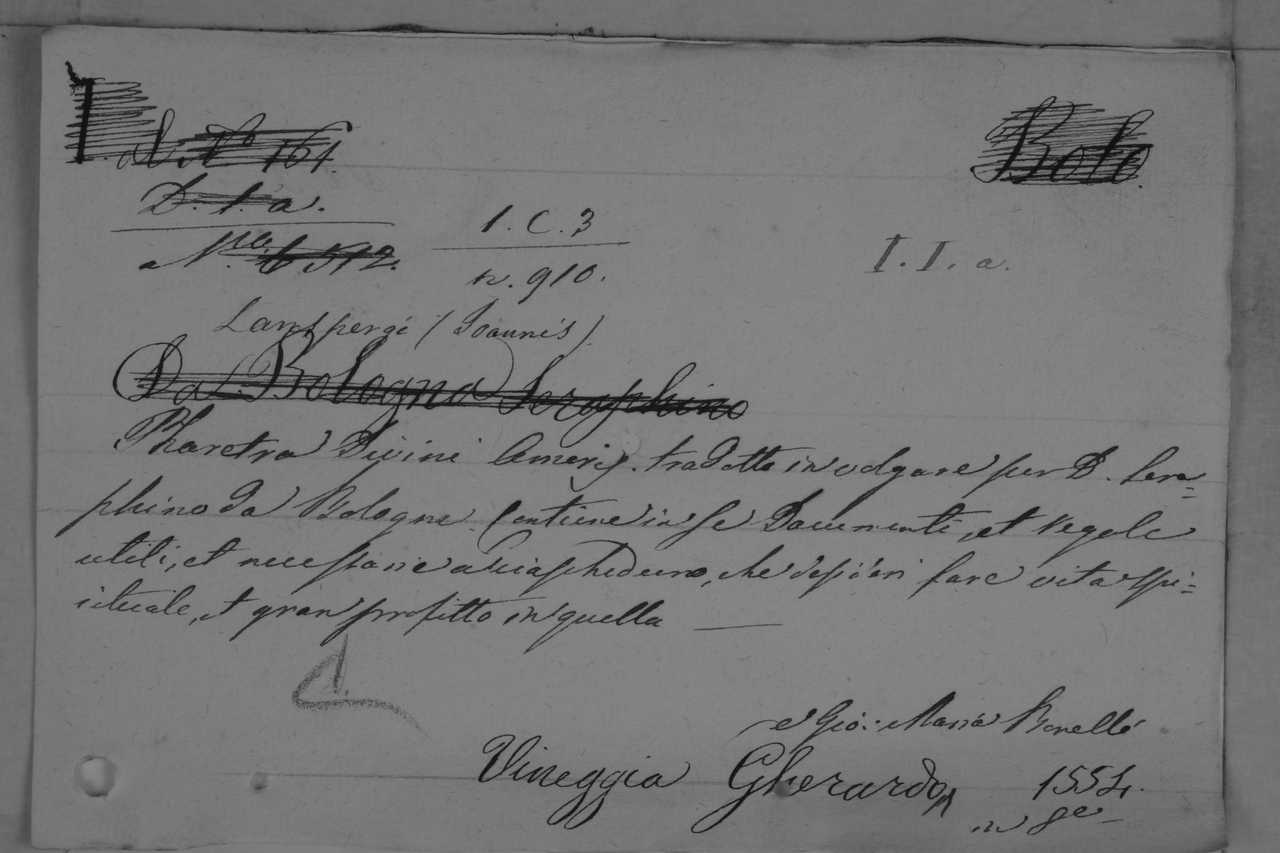 N.º 161.
Bolo
D. 1. a.
1. C. 3
N.ro 6512.
I. I. a.
n. 910.
Lanspergi (Joannis)
Da Bologna Seraphino
Pharetra Divini Amoris. tradotta in volgare per D. Sera=
phino da Bologna. Contiene in se Documenti, et regole
utili, et necessarie a ciascheduno, che desideri fare vita spi=
rituale, et gran profitto in quella
e Gio: Maria Bonelli
Vineggia Gherardo 1554.
in 8º